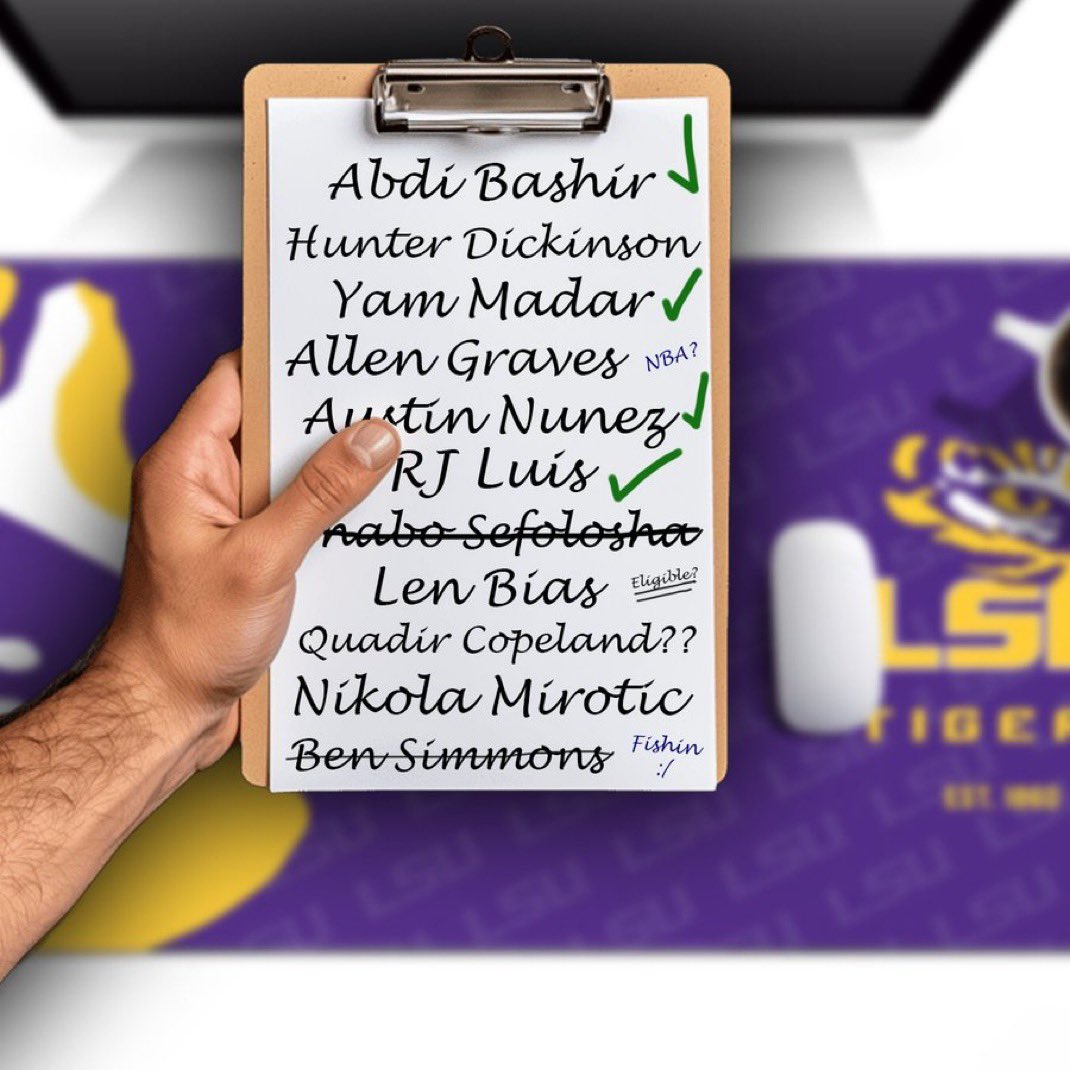 Abdi Bashir
Hunter Dickinson
Yam Madar
Allen Graves NBA?
Austin Nunez
RJ Luis
nabo Sefolosha
Len Bias Eligible?
Quadir Copeland??
Nikola Mirotic
Ben Simmons Fishin :/
LSU
TIGER
EST. 1860